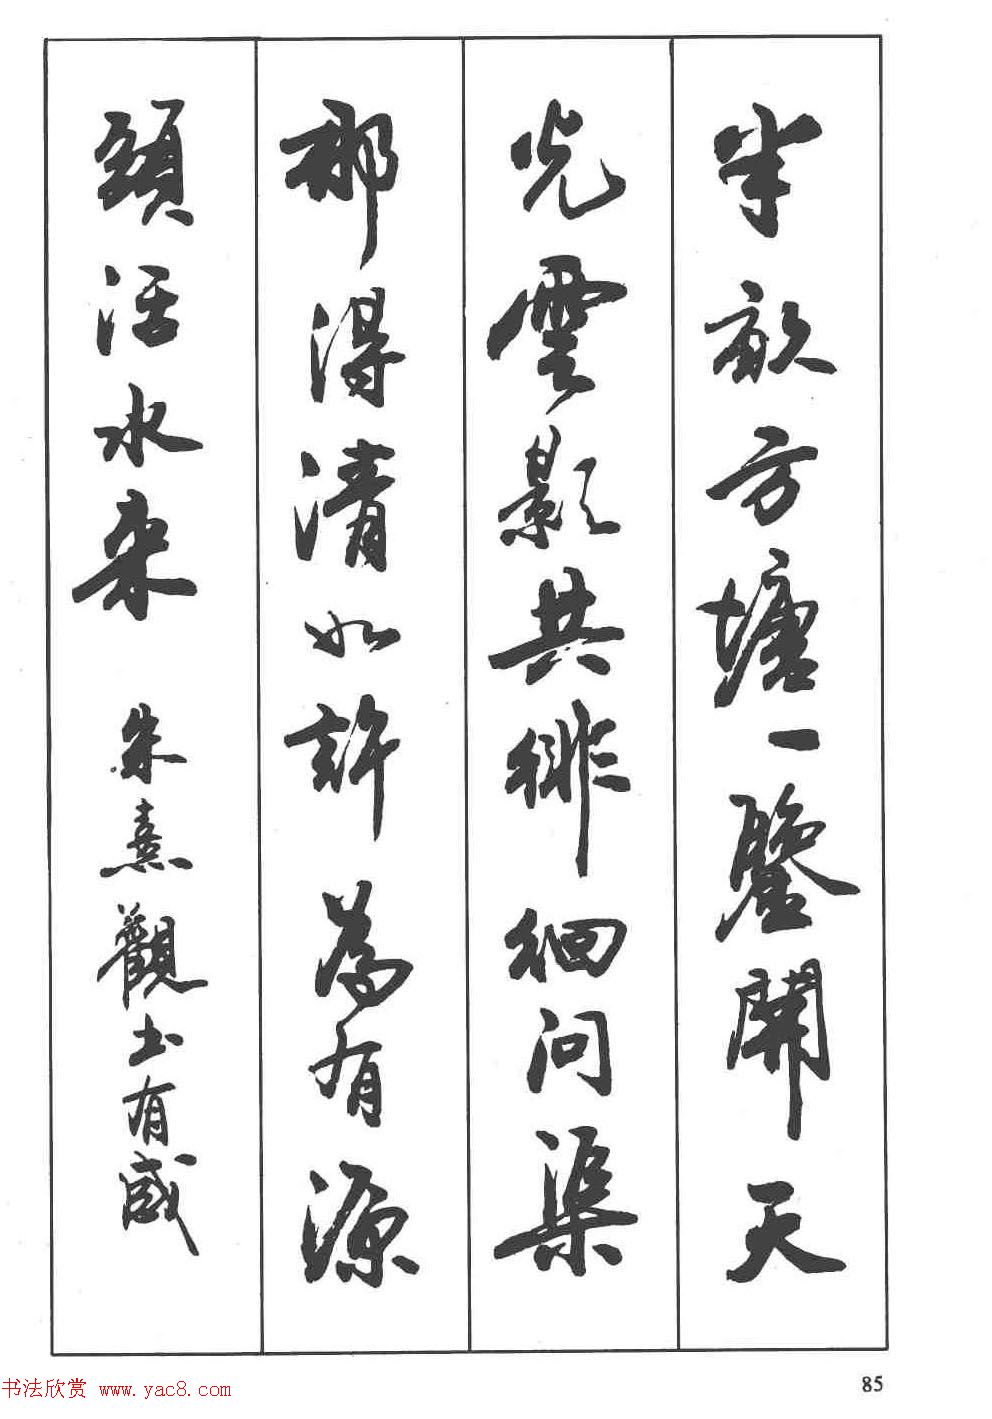 半畝方塘一鑒開天
光雲影共徘徊問渠
那得清如許為有源
頭活水来 朱熹觀书有感
85
书法欣赏 www.yac8.com